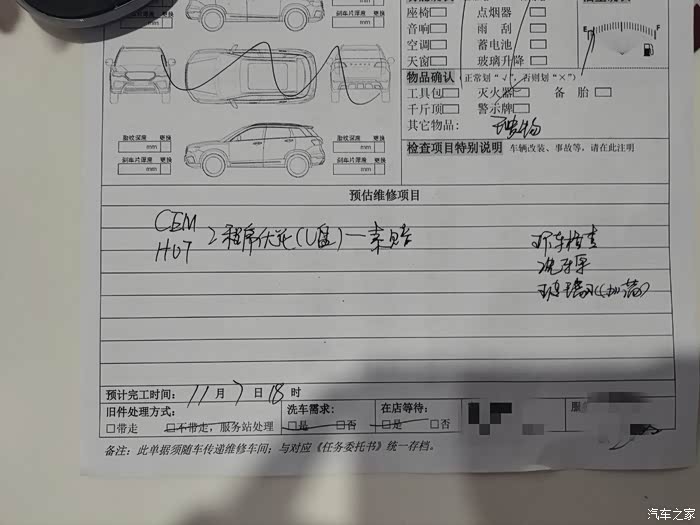 座椅□ 点烟器□
音响□ 雨 刮□
空调□ 蓄电池□
天窗□ 玻璃升降□
E F
物品确认（正常划“√”，否则划“×”）
工具包□ 灭火器□ 备 胎□
千斤顶□ 警示牌□
其它物品:
检查项目特别说明 车辆改装、事故等，请在此注明
胎纹深度 更换
mm
刹车片厚度 更换
mm
胎纹深度 更换
mm
刹车片厚度 更换
mm
预估维修项目
CEM
HUT 程序优化(U盘)一索赔
环车检查
洗车
玻璃水
预计完工时间: 11月7日18时
旧件处理方式:
□带走 □不带走，服务站处理
洗车需求:
□是 □否
在店等待:
□是 □否
备注：此单据须随车传递维修车间；与对应《任务委托书》统一存档。
汽车之家